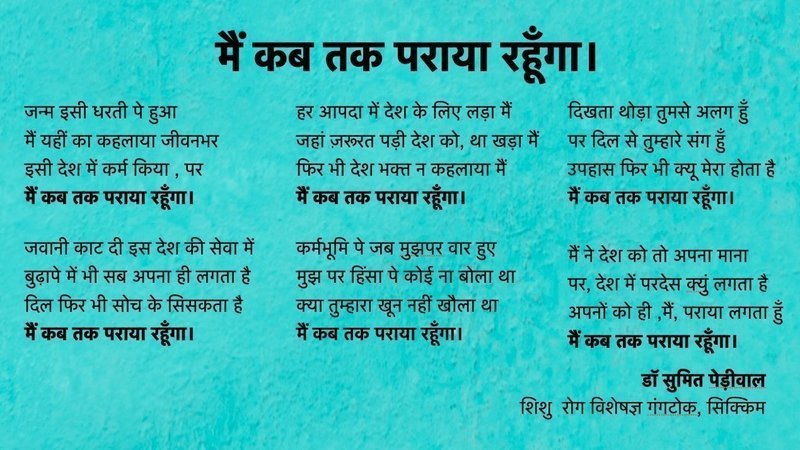 मैं कब तक पराया रहूँगा।
जन्म इसी धरती पे हुआ
मैं यहीं का कहलाया जीवनभर
इसी देश में कर्म किया , पर
मैं कब तक पराया रहूँगा।
जवानी काट दी इस देश की सेवा में
बुढ़ापे में भी सब अपना ही लगता है
दिल फिर भी सोच के सिसकता है
मैं कब तक पराया रहूँगा।
हर आपदा में देश के लिए लड़ा मैं
जहां ज़रूरत पड़ी देश को, था खड़ा मैं
फिर भी देश भक्त न कहलाया मैं
मैं कब तक पराया रहूँगा।
कर्मभूमि पे जब मुझपर वार हुए
मुझ पर हिंसा पे कोई ना बोला था
क्या तुम्हारा खून नहीं खौला था
मैं कब तक पराया रहूँगा।
दिखता थोड़ा तुमसे अलग हुँ
पर दिल से तुम्हारे संग हुँ
उपहास फिर भी क्यू मेरा होता है
मैं कब तक पराया रहूँगा।
मैं ने देश को तो अपना माना
पर, देश में परदेस क्युं लगता है
अपनों को ही ,मैं, पराया लगता हुँ
मैं कब तक पराया रहूँगा।
डॉ सुमित पेड़ीवाल
शिशु रोग विशेषज्ञ गंगटोक, सिक्किम